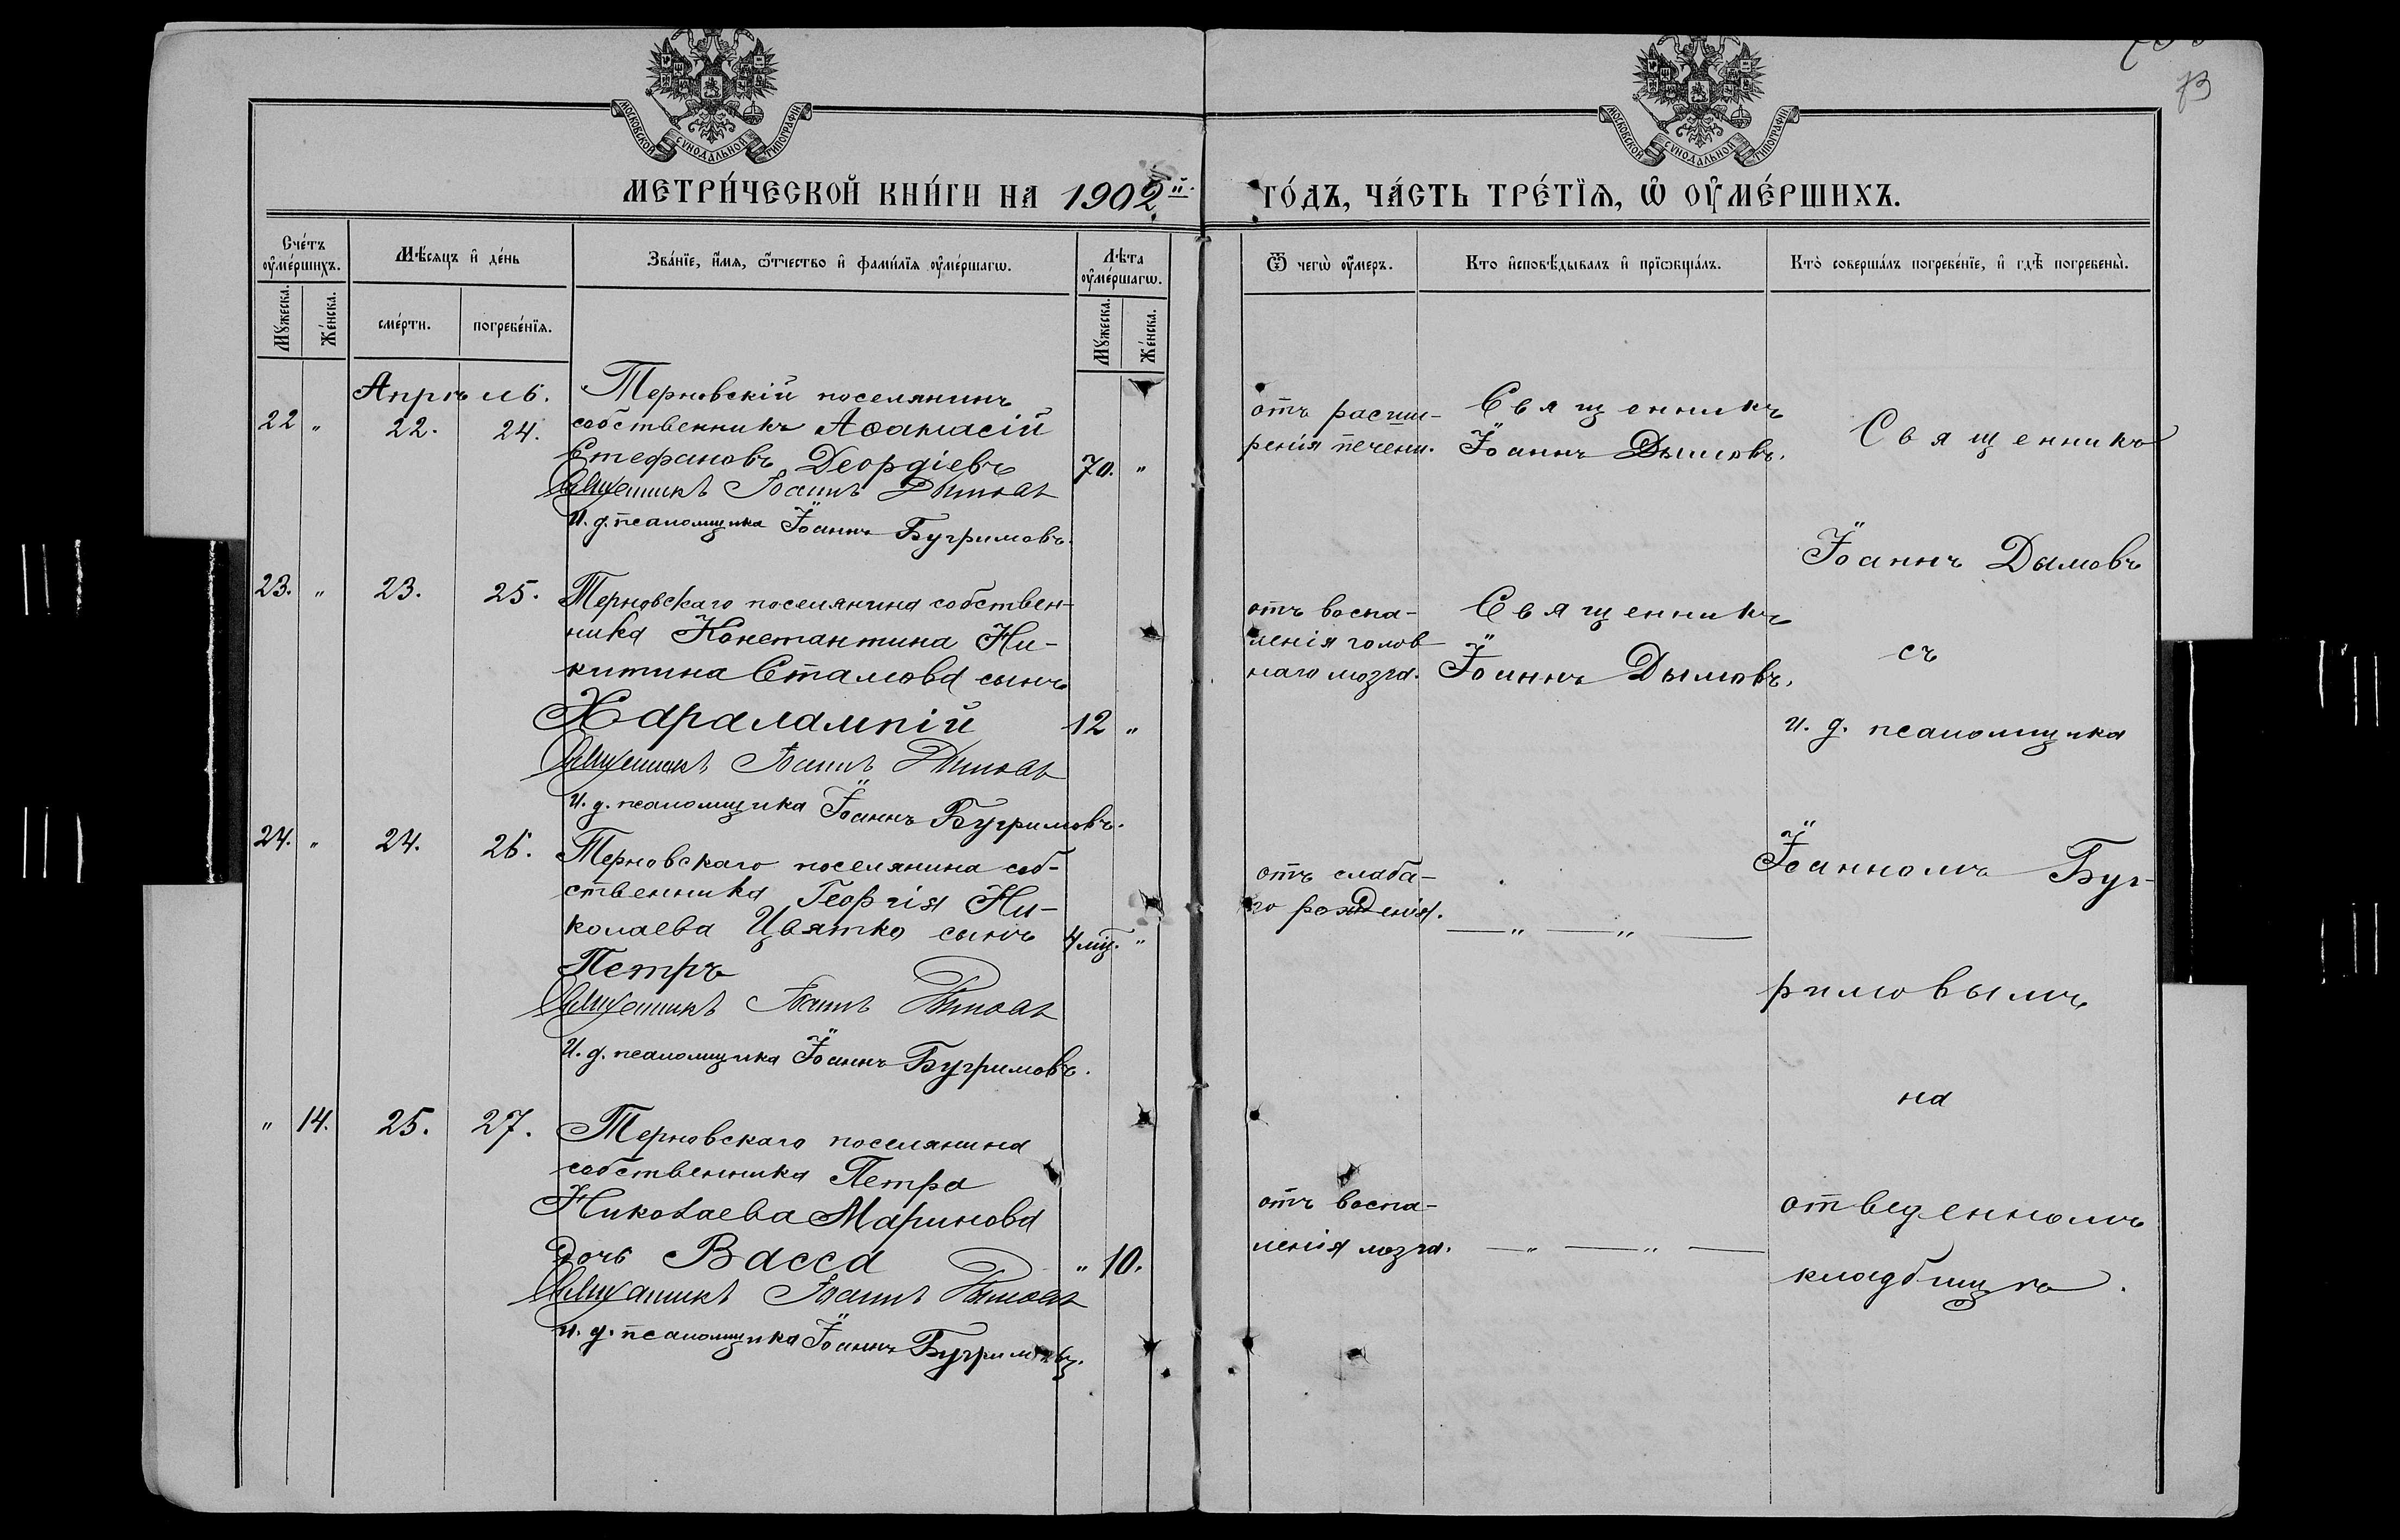 73
МОСКОВСКОЙ СѴНОДАЛЬНОЙ ТИПОГРАФІИ
МОСКОВСКОЙ СѴНОДАЛЬНОЙ ТИПОГРАФІИ
МЕТРИ́ЧЕСКОЙ КНИ́ГИ НА 1902й
ГО́ДЪ, ЧА́СТЬ ТРЕ́ТЇѦ, Ѡ҆ ОУ҆МЕ́РШИХЪ.
Сче́тъ оу҆ме́ршихъ.
Мꙋ́жеска.
Же́нска.
Мѣ́сяцъ и҆ де́нь
сме́рти.
погребе́нїѧ.
Зва́нїе, и҆́мѧ, ѻ҆́тчество и҆ фами́лїѧ оу҆ме́ршагѡ.
Лѣ́та оу҆ме́ршагѡ.
Мꙋ́жеска.
Же́нска.
Ѿ чегѡ̀ оу҆́меръ.
Кто̀ и҆сповѣ́дывалъ и҆ прїѡбща́лъ.
Кто̀ соверша́лъ погребе́нїе, и҆ гдѣ̀ погребены̀.
Апрѣль.
22 " 22. 24.
Терновскій поселянинъ
собственникъ Аѳанасій
Стефановъ Деордіевъ
70. "
Священникъ Іоаннъ Дымовъ
И. д. псаломщика Іоаннъ Бугримовъ.
отъ расши-
ренія печени.
Священникъ
Іоаннъ Дымовъ.
23. " 23. 25.
Терновскаго поселянина собствен-
ника Константина Ни-
китина Стамова сынъ
Харалампій
12 "
Священникъ Іоаннъ Дымовъ
И. д. псаломщика Іоаннъ Бугримовъ.
отъ воспа-
ленія голов-
наго мозга.
Священникъ
Іоаннъ Дымовъ.
24. " 24. 26.
Терновскаго поселянина соб-
ственника Георгія Ни-
колаева Цвятко сынъ
Петръ
4 мц. "
Священникъ Іоаннъ Дымовъ
И. д. псаломщика Іоаннъ Бугримовъ.
отъ слаба-
го рожденія.
— " — " —
" 14. 25. 27.
Терновскаго поселянина
собственника Петра
Николаева Маринова
дочь Васса
" 10.
Священникъ Іоаннъ Дымовъ
и. д. псаломщика Іоаннъ Бугримовъ.
отъ воспа-
ленія мозга.
— " — " —
Священникъ
Іоаннъ Дымовъ
съ
и. д. псаломщика
Іоанномъ Буг-
римовымъ
на
отведенномъ
кладбищѣ.